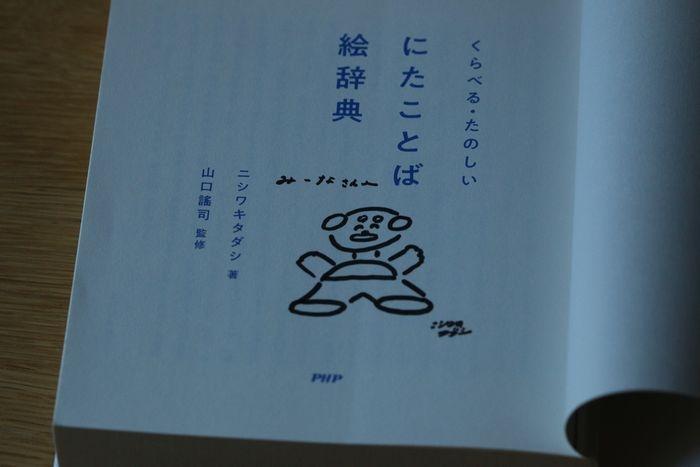 くらべる・たのしい
にたことば
絵辞典
ニシワキタダシ 著
山口謠司 監修
みーなさんへ
ニシワキ
タダシ
PHP